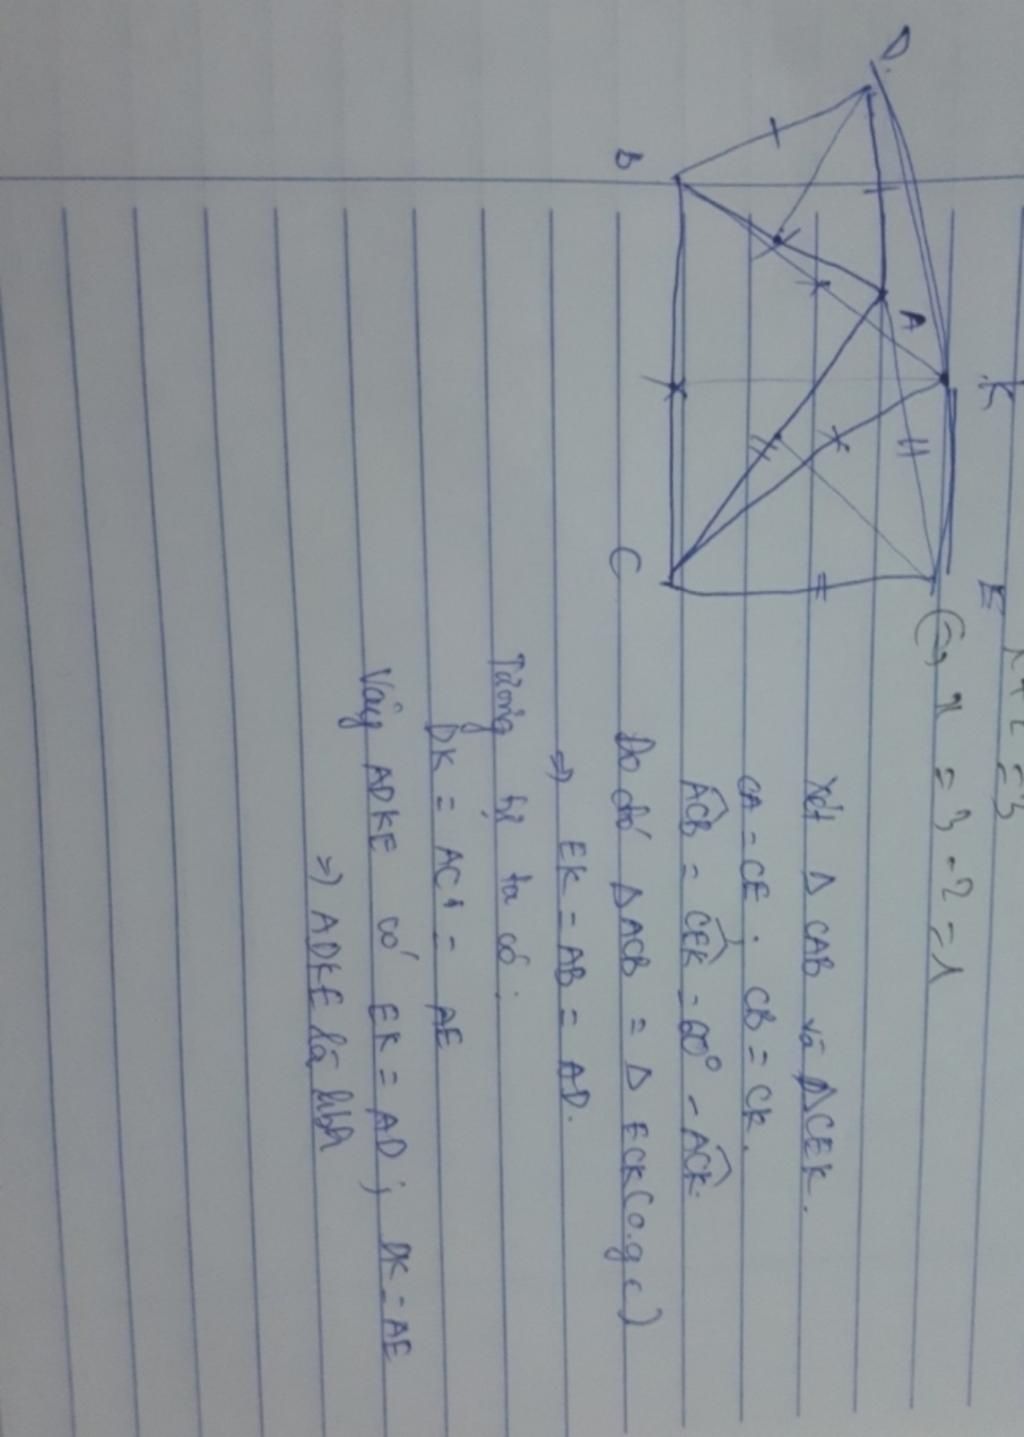 x+2=3
(=) x = 3-2=1
D
A
K
E
B
C
Xét Δ CAB và ΔCEK.
CA = CE. CB = CK.
ACB = CEK = 60° - ACK.
Do đó ΔACB = Δ ECK (c.g.c)
=> EK = AB = AD.
Tương tự ta có:
DK = AC = AE
Vậy ADKE có EK = AD; DK = AE
=> ADKE là hbh